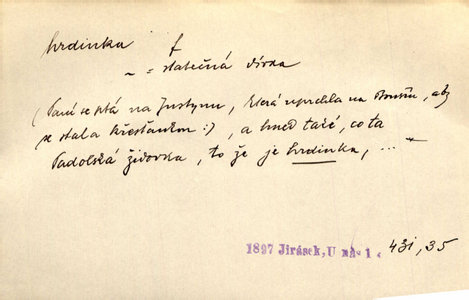 hrdinka f
~ = statečná dívka
(Paní se ptá na Justynu, která uprchla na Prusko, aby
se stala křesťankou:), a hned také, co ta
Padolská židovka, to že je hrdinka, ... "
1897 Jirásek, U nás 1. 431, 35